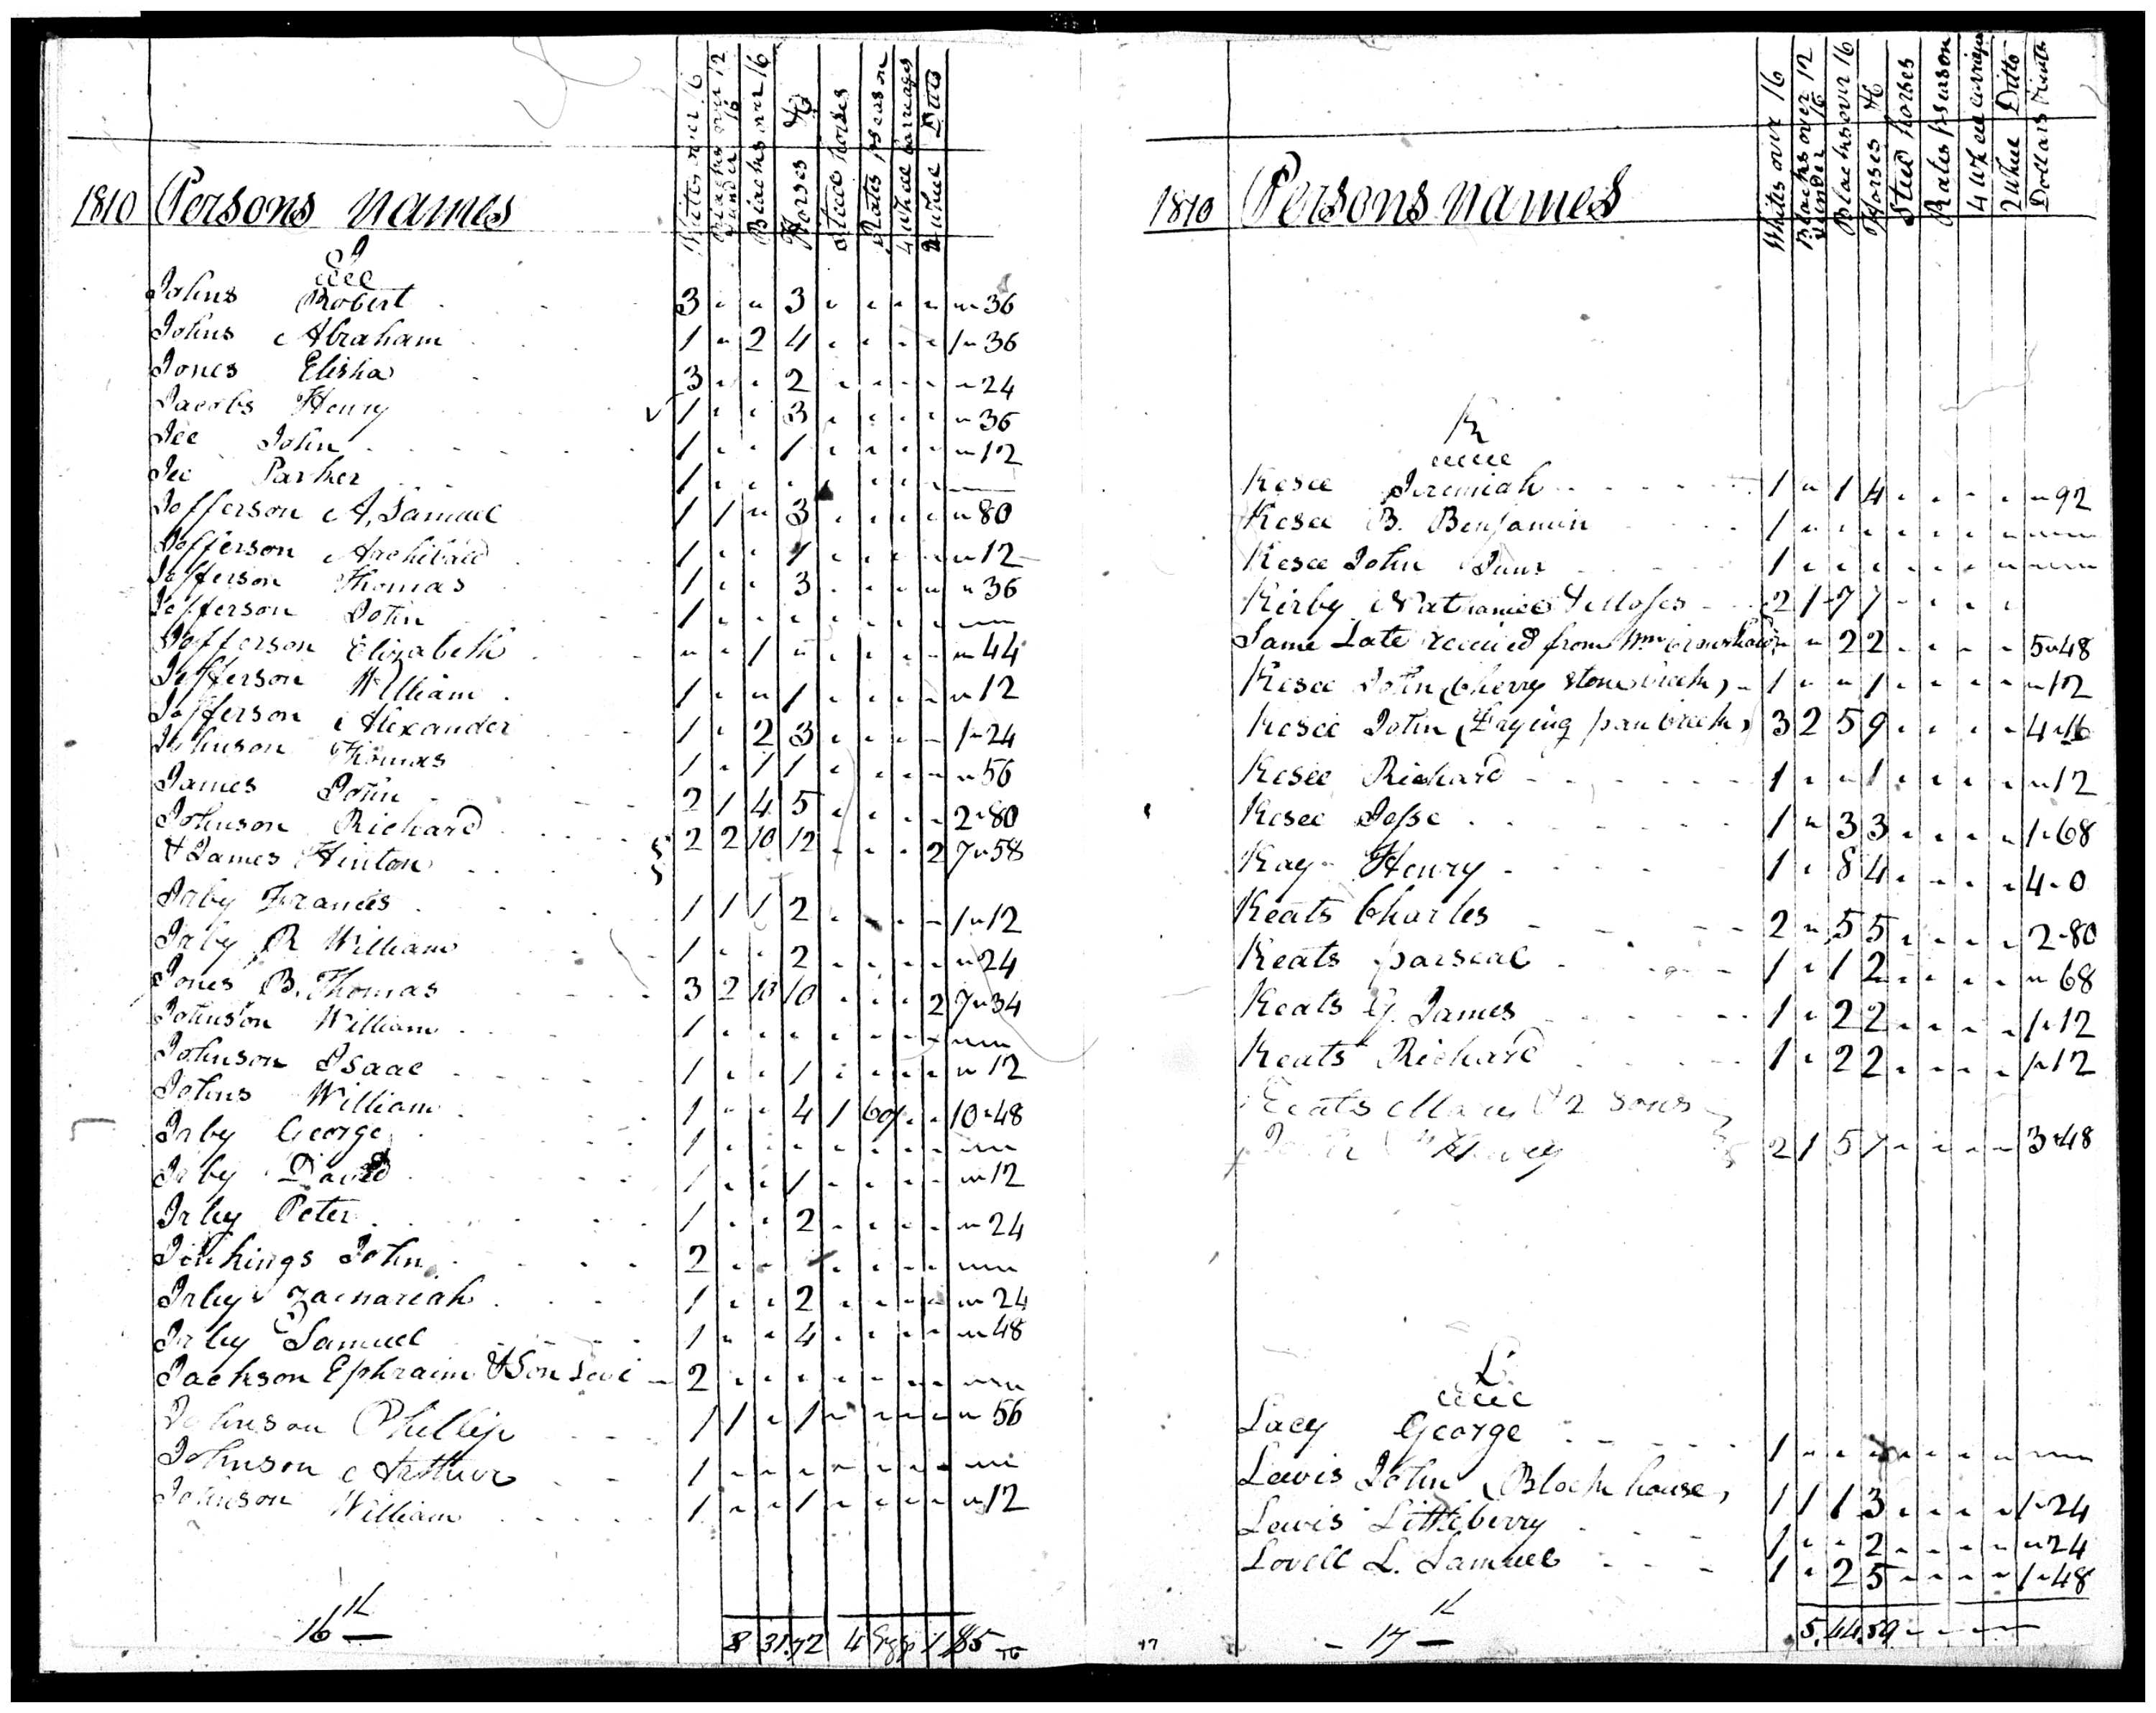 1810 Persons names Whites over 16 Blacks over 12 & under 16 Blacks over 16 Horses &c Stud horses Rates pr season 4 Wheel carriages 2 wheel Ditto
J
Johns Robert 3 " " 3 " " " " " 36
Johns Abraham 1 " 2 4 " " " " 1 " 36
Jones Elisha 3 " " 2 " " " " " 24
Jacobs Henry 1 " " 3 " " " " " 36
Jee John 1 " " 1 " " " " " 12
Jee Parker 1 " " " " " " "
Jefferson A, Samuel 1 1 " 3 " " " " " 80
Jefferson Archibald 1 " " 1 " " " " " 12
Jefferson Thomas 1 " " 3 " " " " " 36
Jefferson John 1 " " " " " " "
Jefferson Elizabeth " " 1 " " " " " " 44
Jefferson William 1 " " 1 " " " " " 12
Jefferson Alexander 1 " 2 3 " " " " 1 " 24
Johnson Thomas 1 " 1 1 " " " " " 56
James John 2 1 4 5 " " " " 2 " 80
Johnson Richard 2 2 10 12 " " " 2 7 " 58
& James Hinton
Irby Francis 1 1 1 2 " " " " 1 " 12
Irby R William 1 " " 2 " " " " " 24
Jones B. Thomas 3 2 10 10 " " " 2 7 " 34
Johnson William 1 " " " " " " "
Johnson Isaac 1 " " 1 " " " " " 12
Johns William 1 " " 4 1 " " 10 " 48
Irby George 1 " " " " " " "
Irby David 1 " " 1 " " " " " 12
Irby Peter 1 " " 2 " " " " " 24
Jenkings John 2 " " " " " " "
Irby Zachariah 1 " " 2 " " " " " 24
Irby Samuel 1 " " 4 " " " " " 48
Jackson Ephraim & Son Levi 2 " " " " " " "
Johnson Phillip 1 1 " 1 " " " " " 56
Johnson Arthur 1 " " " " " " "
Johnson William 1 " " 1 " " " " " 12
8 31 72
16
1810 Persons names Whites over 16 Blacks over 12 under 16 Blacks over 16 Horses &c Stud horses Rates pr season 4 Wheel carriages 2 Wheel Ditto Dollars
K
Kesee Jeremiah 1 " 1 4 " " " " " 92
Kesee B. Benjamin 1 " " " " " " "
Kesee John Junr 1 " " " " " " "
Kirby Nathaniel & Moses 2 1 7 7 " " " "
Same Late received from Wm " " 2 2 " " " " 5 " 48
Kesee John (Cherry stone creek) 1 " " 1 " " " " " 12
Kesee John (Frying pan creek) 3 2 5 9 " " " " 4 " 16
Kesee Richard 1 " " 1 " " " " " 12
Kesee Jesse 1 " 3 3 " " " " 1 " 68
Kay Henry 1 " 8 4 " " " " 4 " 0
Keats Charles 2 " 5 5 " " " " 2 " 80
Keats 1 " 1 2 " " " " " 68
Keats G. James 1 " 2 2 " " " " 1 " 12
Keats Richard 1 " 2 2 " " " " 1 " 12
Keats 2 sons
2 1 5 7 " " " " 3 " 48
L
Lacy George 1 " " " " " " "
Lewis John (Block house) 1 1 1 3 " " " " 1 " 24
Lewis Littleberry 1 " " 2 " " " " " 24
Lovell L. Samuel 1 " 2 5 " " " " 1 " 48
5 44 59
17 17